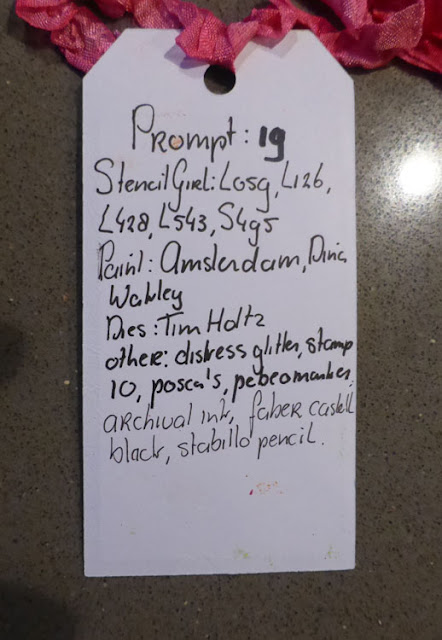 Prompt: 19
StencilGirl: L059, L126,
L428, L543, S495
Paint: Amsterdam, Dina
Wakley
Dies: Tim Holtz
others: distress glitter, stamp
10, posca's, pebeomarker,
archival ink, faber castell
black, stabillo pencil.